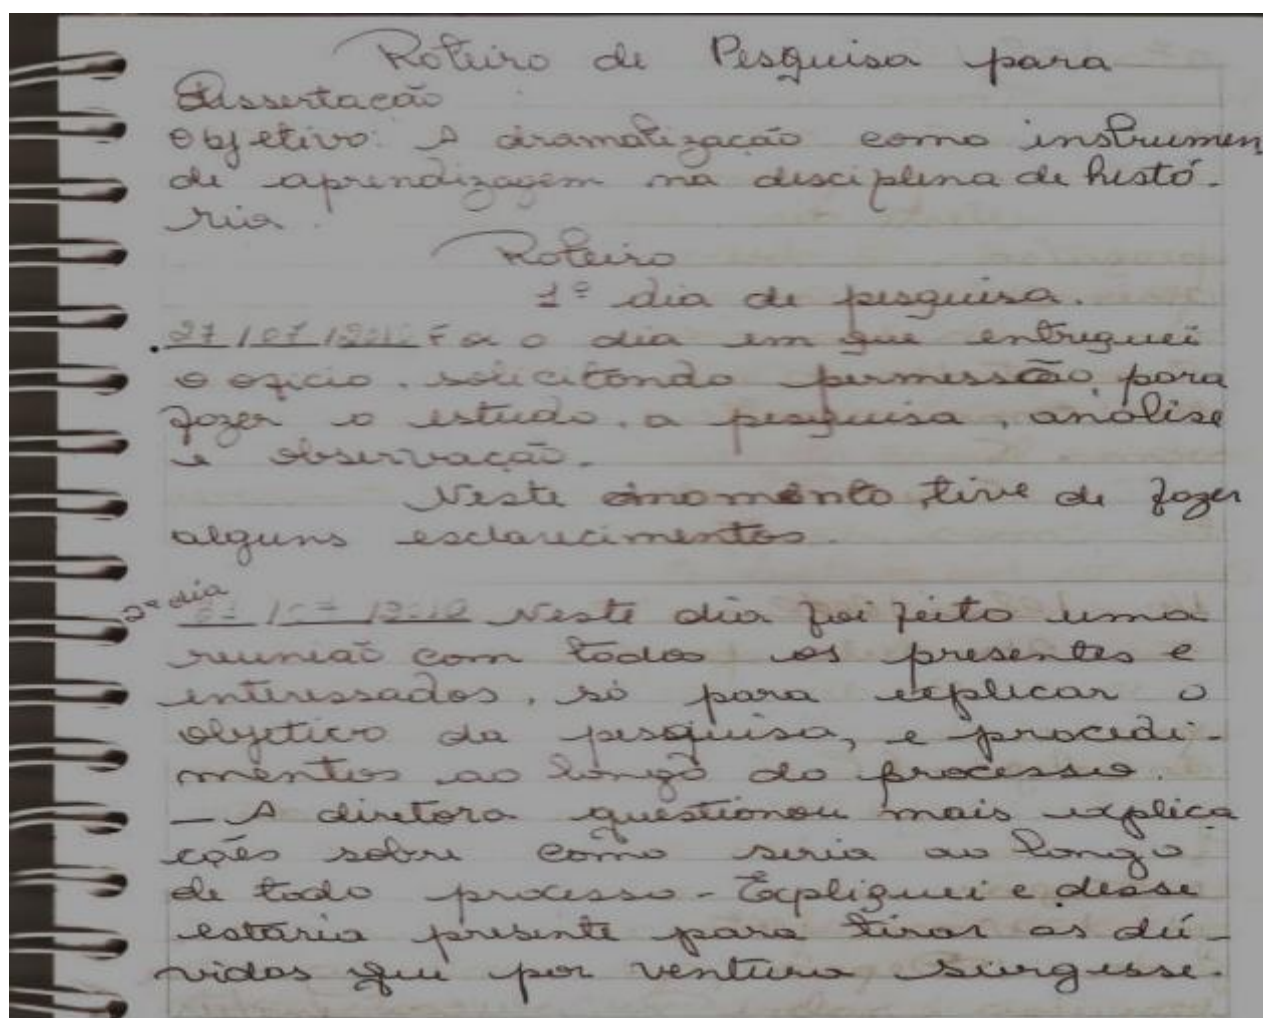 Roteiro de Pesquisa para
Dissertação
Objetivo: A dramatização como instrumen
de aprendizagem na disciplina de histó-
ria.
Roteiro
1º dia de pesquisa.
27/07/ o dia em que entreguei
o oficio, solicitando permissão para
fazer o estudo, a pesquisa, análise
e observação.
Neste momento, tive de fazer
alguns esclarecimentos.
2º dia
Neste dia foi feito uma
reunião com todos os presentes e
interessados, só para explicar o
objetivo da pesquisa, e procedi-
mentos ao longo do processo.
- A diretora questionou mais explica
ções sobre como seria ao longo
de todo processo - Expliquei e disse
estaria presente para tirar as dú-
vidas que por ventura surgisse.